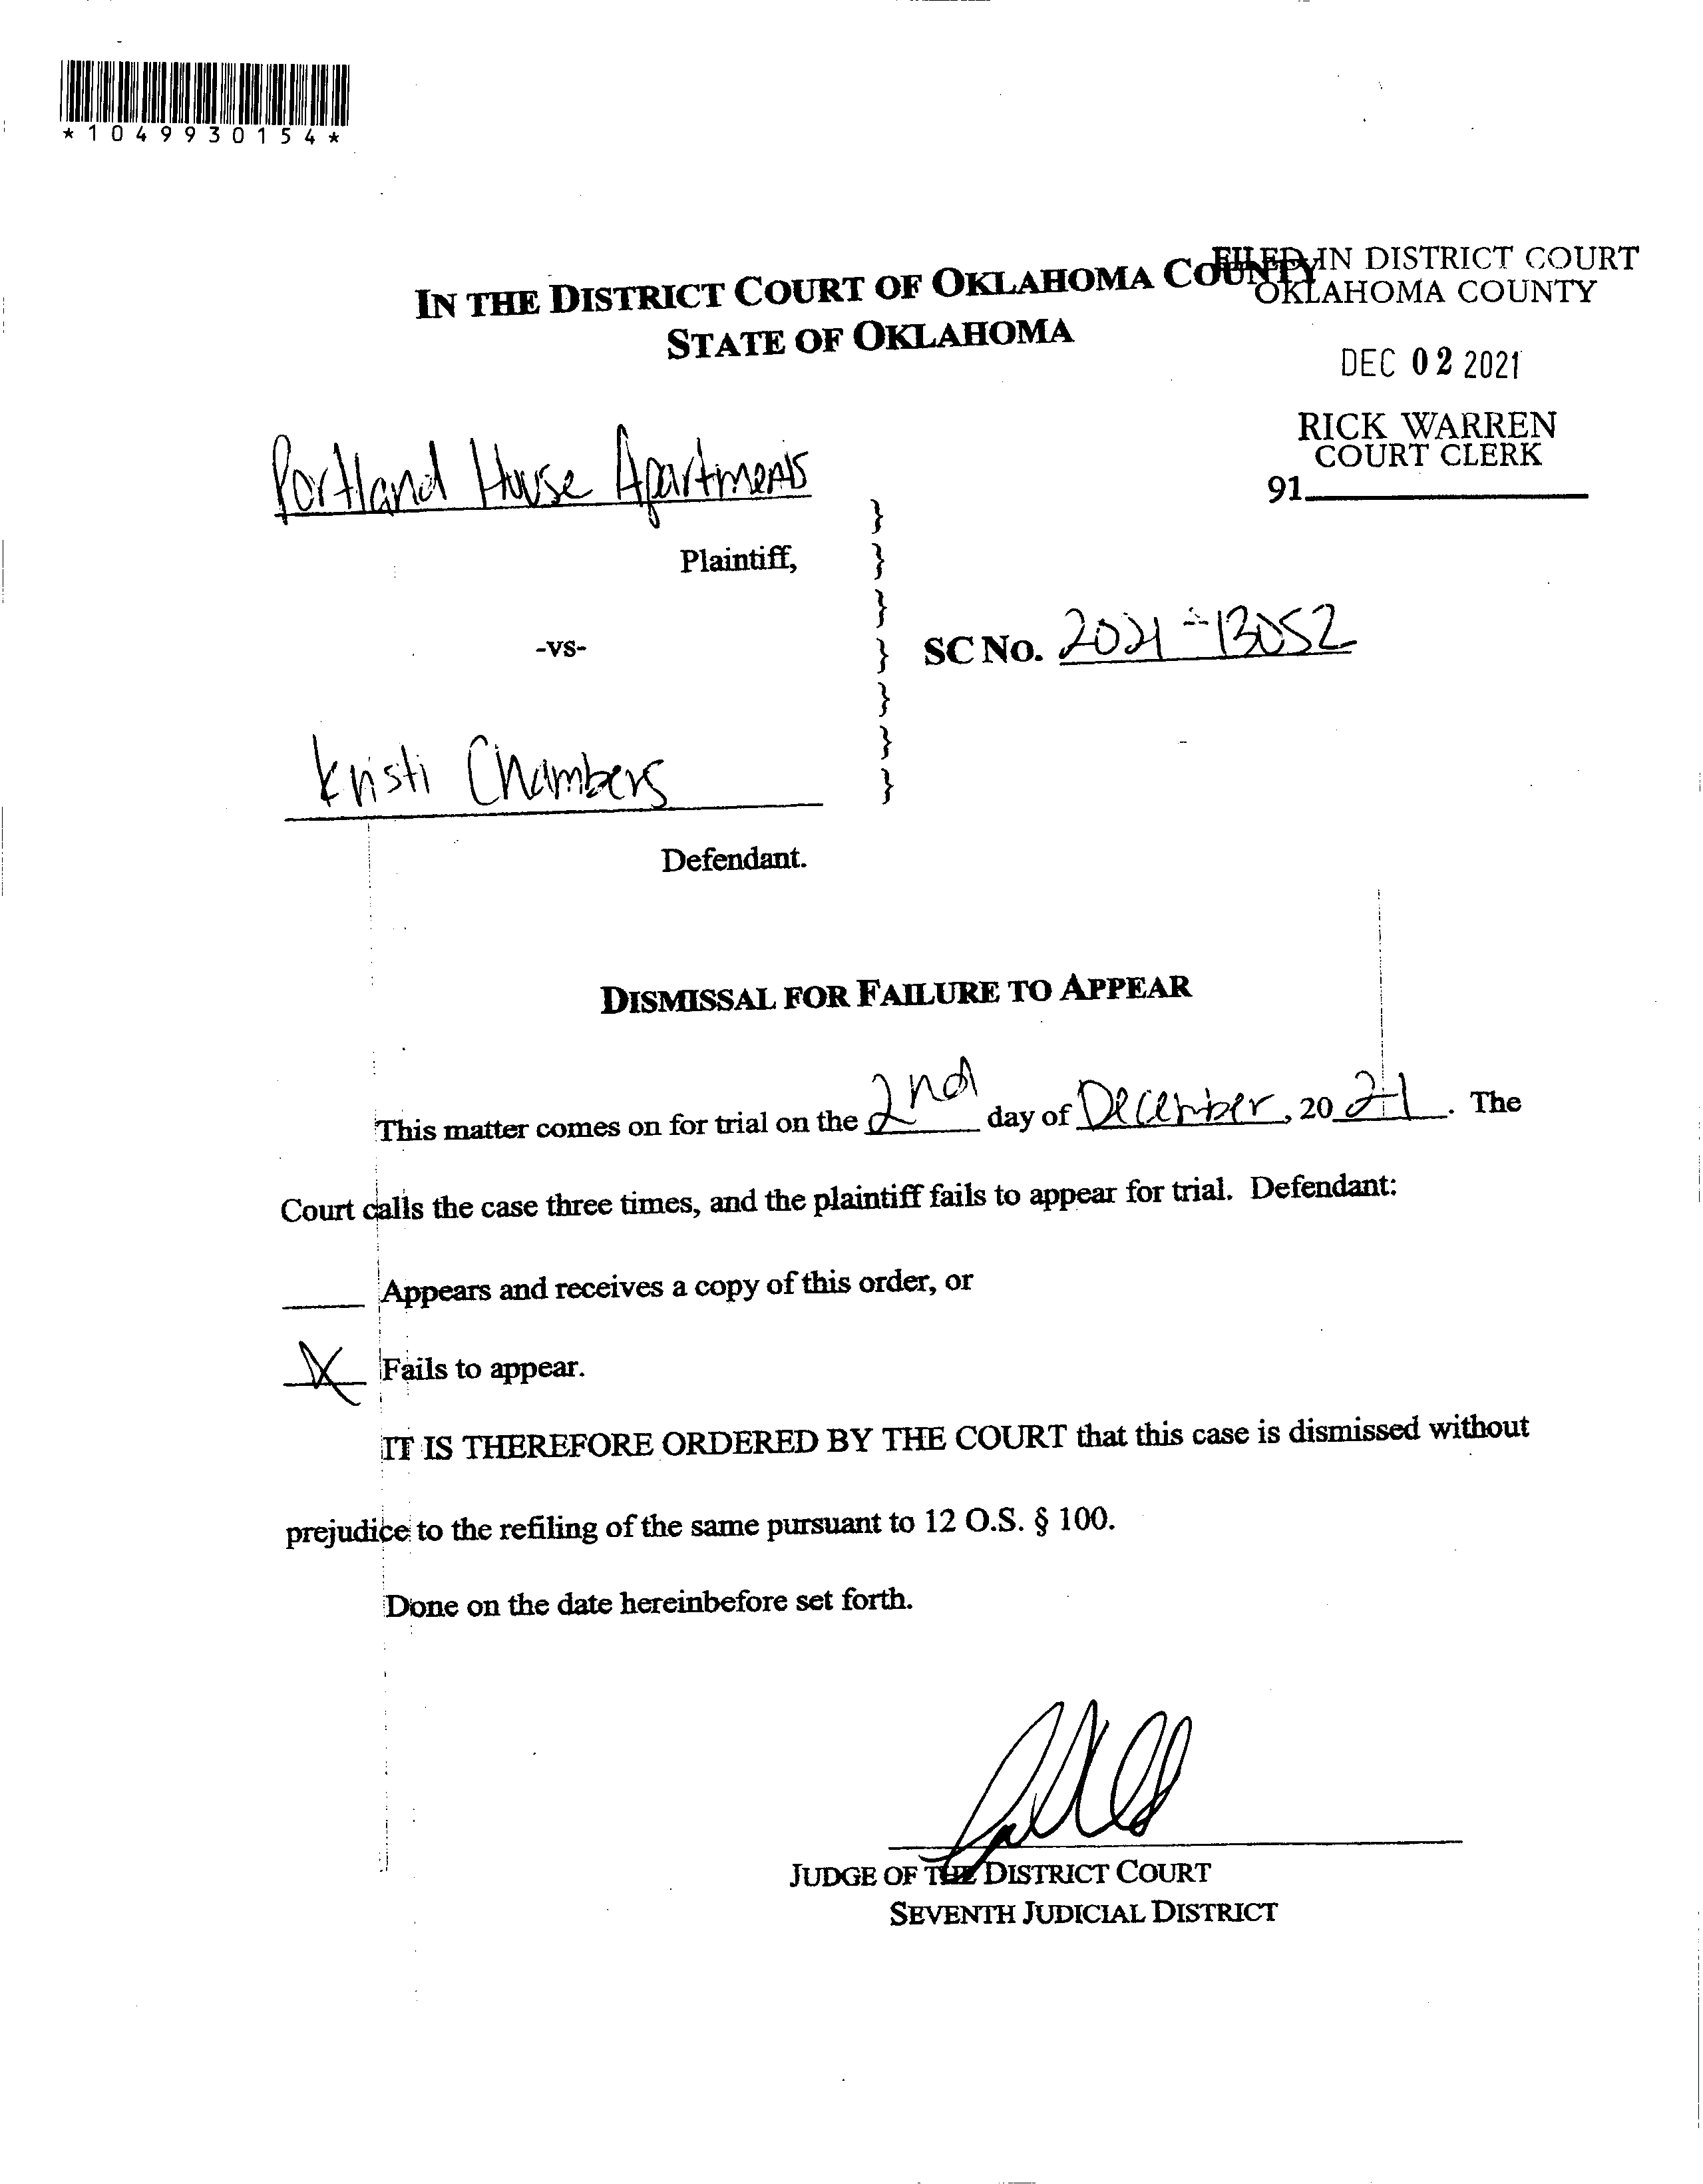 *1049930154*
IN THE DISTRICT COURT OF OKLAHOMA COUNTY
STATE OF OKLAHOMA
FILED IN DISTRICT COURT
OKLAHOMA COUNTY
DEC 02 2021
RICK WARREN
COURT CLERK
91
Portland House Apartments
Plaintiff,
-vs-
SC NO. 2021-13052
Kristi Chambers
Defendant.
DISMISSAL FOR FAILURE TO APPEAR
This matter comes on for trial on the 2nd day of December, 2021. The
Court calls the case three times, and the plaintiff fails to appear for trial. Defendant:
____ Appears and receives a copy of this order, or
X Fails to appear.
IT IS THEREFORE ORDERED BY THE COURT that this case is dismissed without
prejudice to the refiling of the same pursuant to 12 O.S. § 100.
Done on the date hereinbefore set forth.
JUDGE OF THE DISTRICT COURT
SEVENTH JUDICIAL DISTRICT